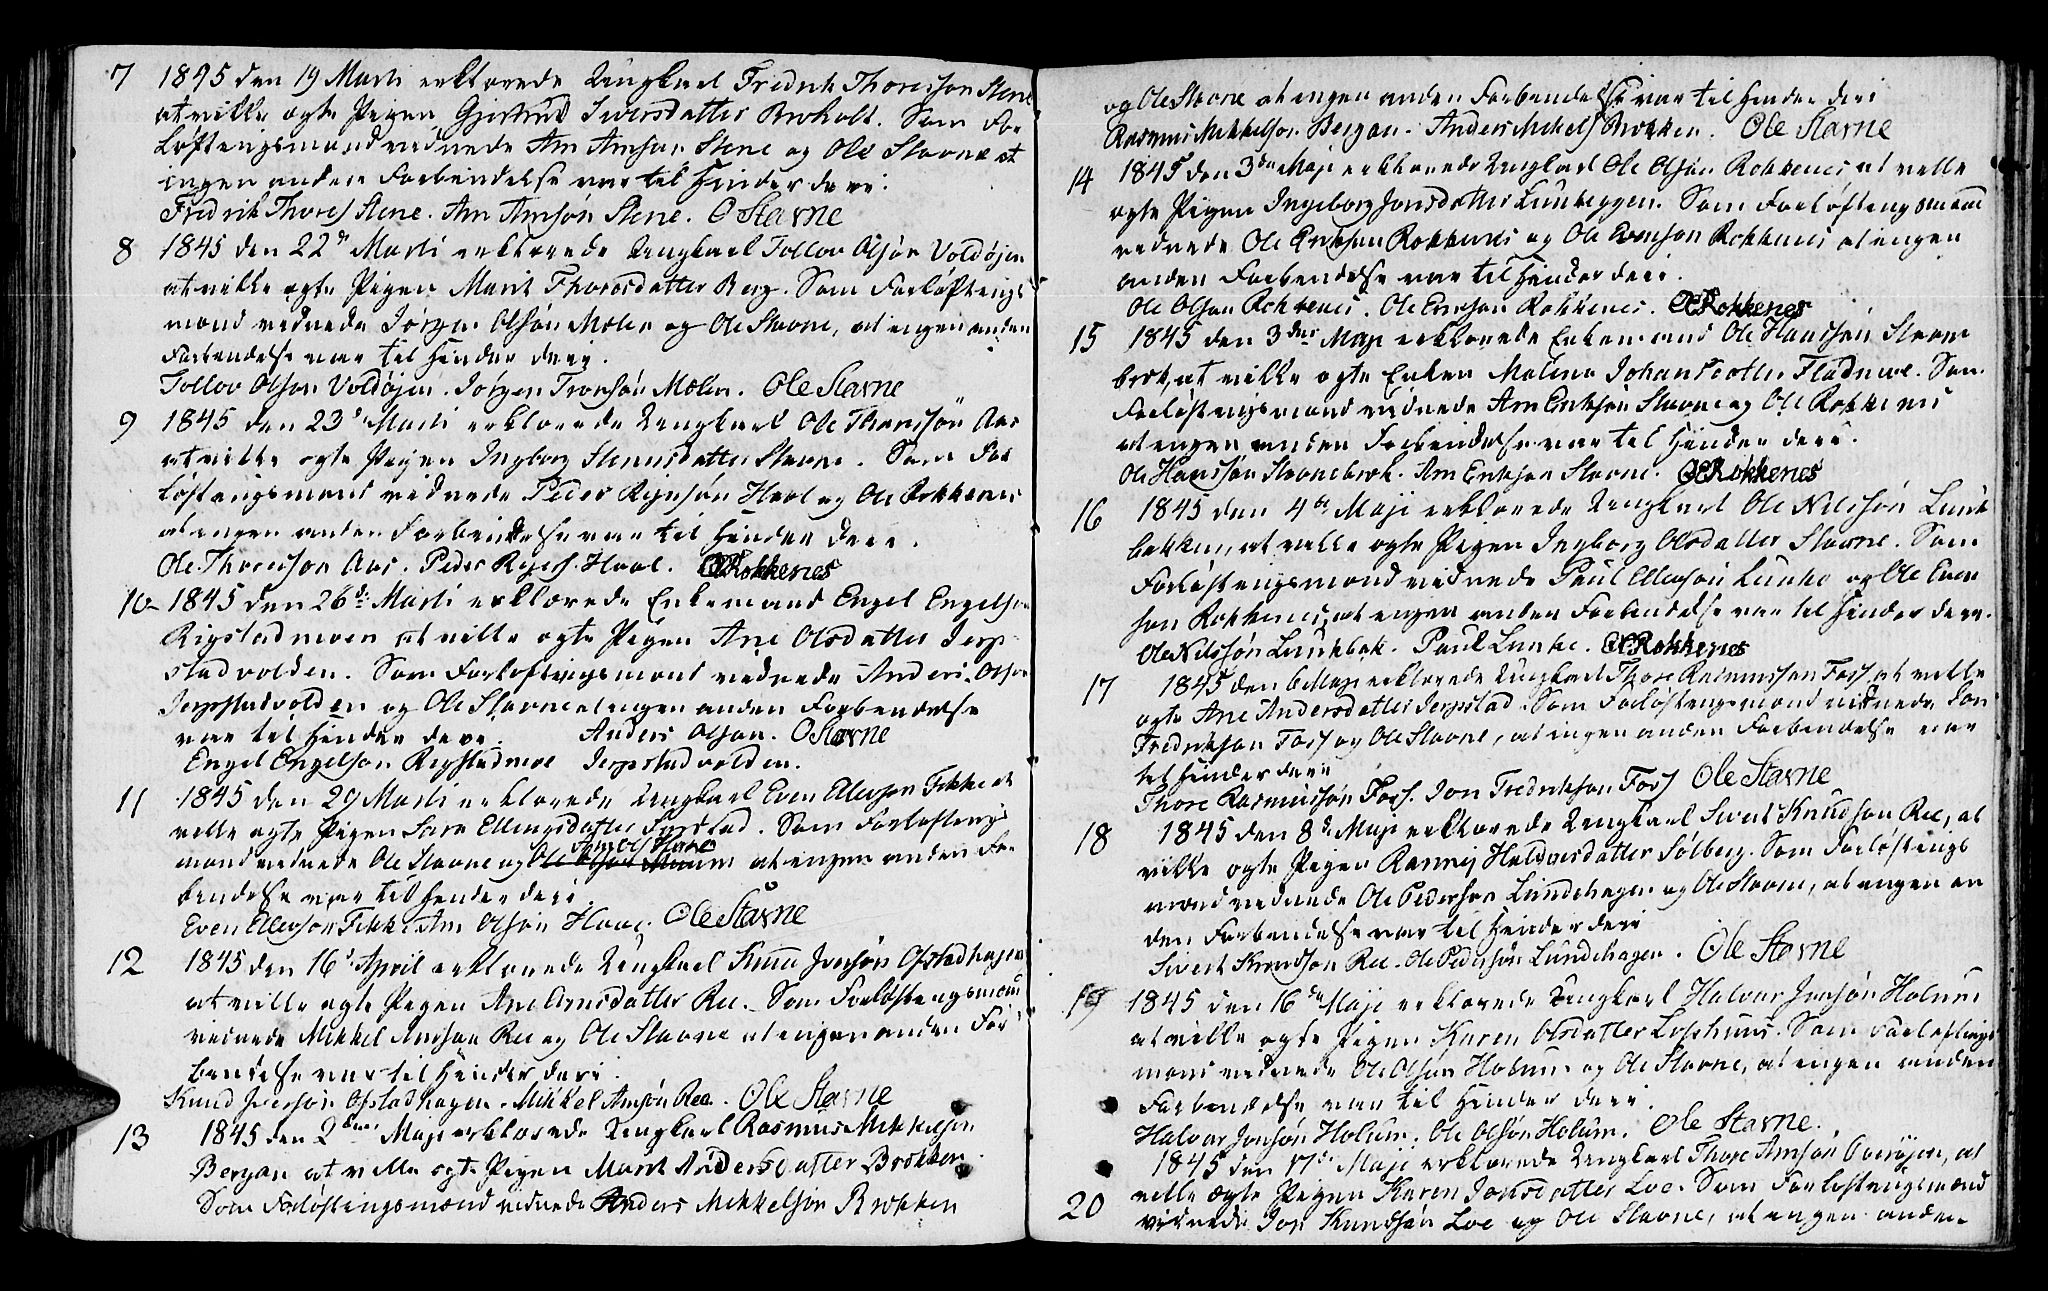 7 1845 den 19 Marti erklærede Ungkarl Fredrik Thoresson Stene
at ville ægte Pigen Gjertrud Iversdatter Broholt. Som For
løftningsmænd vidnede Arn Arnson Stene og Ole Stavne at
ingen anden Forbindelse var til Hinder deri.
Fredrik Thores Stene. Arn Arnsøn Stene. O Stavne
8 1845 den 22de Marti erklærede Ungkarl Tollov Olsøn Voldøjen
at ville ægte Pigen Marit Thorosdatter Berg. Som Forløftnings
mænd vidnede Jørgen Olsøn Molin og Ole Stavne, at ingen anden
Forbendelse var til Hinder deri.
Tollov Olson Voldøjen. Jørgen Tronsøn Molin. Ole Stavne
9 1845 den 23d Marti erklærede Ungkarl Ole Thoresøn Aas
at ville ægte Pigen Ingborg Steensdatter Stavne. Som For
løftningsmænd vidnede Peder Hool og Ole Rokkenes
at ingen anden Forbindelse var til Hinder deri.
Ole Thoresson Aas. Peder Hool. OERokkenes
10 1845 den 26de Marti erklærede Enkemand Engel Engelson
Rigstadmoen at ville ægte Pigen Ane Olsdatter Jerp
stadvolden. Som Forløftningsmænd vidnede Anders Olson
Jerpstadvolden og Ole Stavne at ingen anden Forbendelse
var til Hinder deri. Anders Olson. O Stavne
Engel Engelson Rigstadmoe Jerpstadvolden.
11 1845 den 29 Marti erklærede Ungkarl Even Ellevson Fikke at
ville ægte Pigen Sara Ellingsdatter. Som Forløftnings
Arn Ols Hove
mænd vidnede Ole Stavne og at ingen anden For
bendelse var til Hinder deri.
Even Ellevson Fikke Arn Olsøn Hove. Ole Stavne
12 1845 den 16d April erklærede Ungkarl Knud Iversøn Ofstadhagen
at ville ægte Pigen Ane Arnsdatter Ree. Som Forløftningsmænd
vidnede Mikkel Arnson Ree og Ole Stavne at ingen anden For
bendelse var til Hinder deri.
Knud Iverson Ofstadhagen. Mikkel Arnsøn Ree. Ole Stavne
13 1845 den 2den Maji erklærede Ungkarl Rasmus Mikkelson
Bergan at ville ægte Pigen Marit Andersdatter Brokken
Som Forløftningsmænd vidnede Anders Mekkelson Brokken
og Ole Stavne at ingen anden Forbendelse var til Hinder deri
Rasmus Mikkelson Bergan. Anders Mekels Brokken. Ole Stavne
14 1845 den 3die Maji erklærede Ungkarl Ole Olson Rokkenes at ville
ægte Pigen Ingeborg Jonsdatter Lunbeggen. Som Forløftningsmænd
vidnede Ole Erikson Rokkenes og Ole Evenson Rokkenes at ingen
anden Forbendelse var til Hinder deri.
Ole Olson Rokkenes. Ole Erikson Rokkenes. OERokkenes
15 1845 den 3die Maji erklærede Enkemand Ole Hansøn Stavne
brok, at ville ægte Enken Malena Johansdatter Fladmoe. Som
Forløftningsmænd vidnede Arn Erikson Stavne og Ole Rokkenes
at ingen anden Forbendelse var til Hinder deri.
Ole Hansøn Stavnebrok. Arn Erikson Stavne. OERokkenes
16 1845 den 4de Maji erklærede Ungkarl Ole Nilsøn Lunk
bakken, at ville ægte Pigen Ingborg Olsdatter Stavne. Som
Forløftningsmænd vidnede Paul Ellevson Lunke og Ole Even
son Rokkenes, at ingen anden Forbendelse var til Hinder deri.
Ole Nilsøn Lunkbak. Paul Lunke. OERokkenes
17 1845 den 6 Maji erklærede Ungkarl Thore Rasmusson Foss at ville
ægte Ane Andersdatter Jerpstad. Som Forløftningsmænd vidnede Jon
Fredrikson Foss og Ole Stavne, at ingen anden Forbendelse var
til Hinder deri
Thore Rasmussøn Foss. Jon Fredrikson Foss Ole Stavne
18 1845 den 8de Maji erklærede Ungkarl Sivert Knudson Ree, at
ville ægte Pigen Rannej Haldorsdatter Solberg. Som Forløftnings
mænd vidnede Ole Pederson Lundehagen og Ole Stavne, at ingen an
den Forbendelse var til Hinder deri
Sivert Knudson Ree. Ole Pedersøn Lundehagen. Ole Stavne
19 1845 den 16de Maji erklærede Ungkarl Halvor Jonsøn Holum
at ville ægte Pigen Karen Olsdatter Losehuus. Som Forløftnings
mænd vidnede Ole Olsøn Holum og Ole Stavne, at ingen anden
Forbendelse var til Hinder deri.
Halvor Jonsøn Holum. Ole Olsøn Holum. Ole Stavne.
1845 den 17de Maji erklærede Ungkarl Thore Arnsøn Overøjen, at
20 ville ægte Pigen Karen Jonsdatter Loe. Som Forløftningsmænd
vidnede Jon Knudsøn Loe og Ole Stavne, at ingen anden